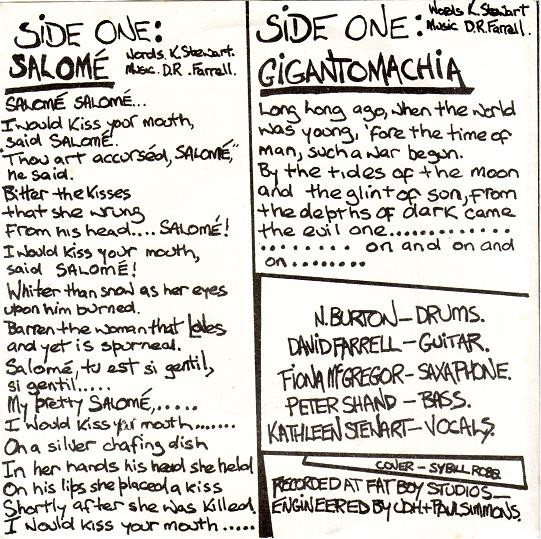 SIDE ONE:
Words K. Stewart.
Music. D.R. Farrell.
SALOMÉ
SALOMÉ SALOMÉ...
I would kiss your mouth,
said SALOMÉ.
"Thou art accurséd, SALOMÉ,"
he said.
Bitter the kisses
that she wrung
From his head.... SALOMÉ!
I would kiss your mouth,
said SALOMÉ!
Whiter than snow as her eyes
upon him burned.
Barren the woman that loves
and yet is spurned.
Salomé, tu est si gentil,
si gentil.....
My pretty SALOMÉ,.....
I would kiss your mouth.......
On a silver chafing dish
In her hands his head she held
On his lips she placed a kiss
Shortly after she was killed.
I would kiss your mouth .....
SIDE ONE:
Words K. Stewart
Music D.R. Farrell.
GIGANTOMACHIA
Long long ago, when the world
was young, 'fore the time of
man, such a war begun.
By the tides of the moon
and the glint of son, from
the depths of dark came
the evil one.............
........ on and on and
on........
N. BURTON – DRUMS.
DAVID FARRELL – GUITAR.
FIONA McGREGOR – SAXAPHONE.
PETER SHAND – BASS.
KATHLEEN STEWART – VOCALS.
COVER – SYBILL ROBB.
RECORDED AT FAT BOY STUDIOS –
ENGINEERED BY J.D.H. + PAUL SIMMONS.